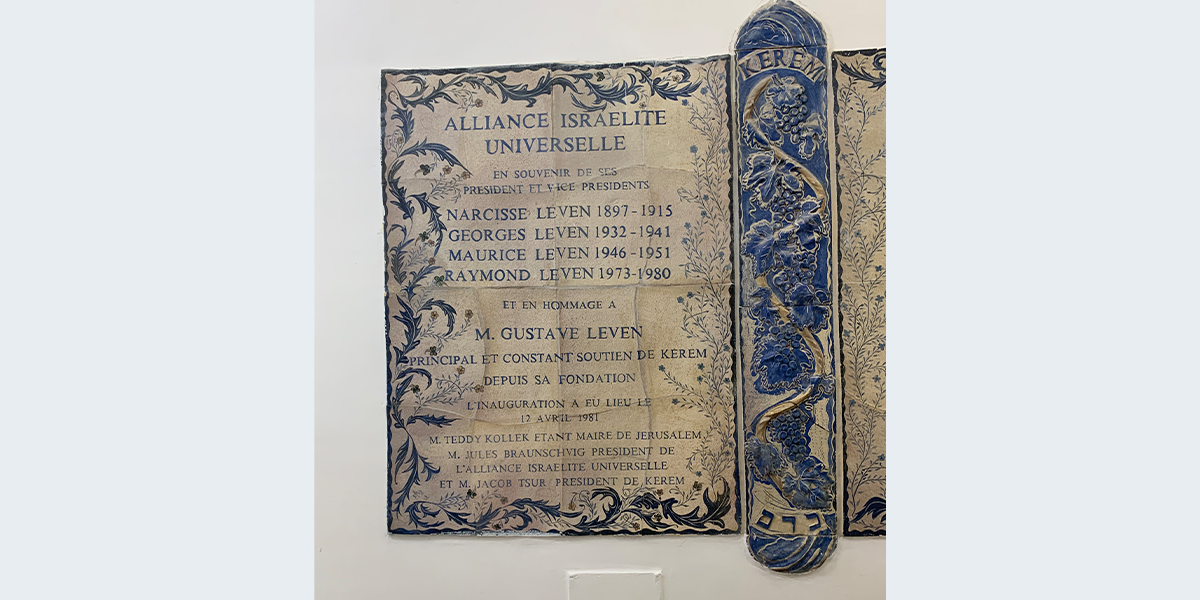 ALLIANCE ISRAELITE
UNIVERSELLE
EN SOUVENIR DE SES
PRESIDENT ET VICE PRESIDENTS
NARCISSE LEVEN 1897-1915
GEORGES LEVEN 1932-1941
MAURICE LEVEN 1946-1951
RAYMOND LEVEN 1973-1980
ET EN HOMMAGE A
M. GUSTAVE LEVEN
PRINCIPAL ET CONSTANT SOUTIEN DE KEREM
DEPUIS SA FONDATION
L'INAUGURATION A EU LIEU LE
12 AVRIL 1981
M. TEDDY KOLLEK ETANT MAIRE DE JERUSALEM,
M. JULES BRAUNSCHVIG PRESIDENT DE
L'ALLIANCE ISRAELITE UNIVERSELLE
ET M. JACOB TSUR PRESIDENT DE KEREM
KEREM
כרם